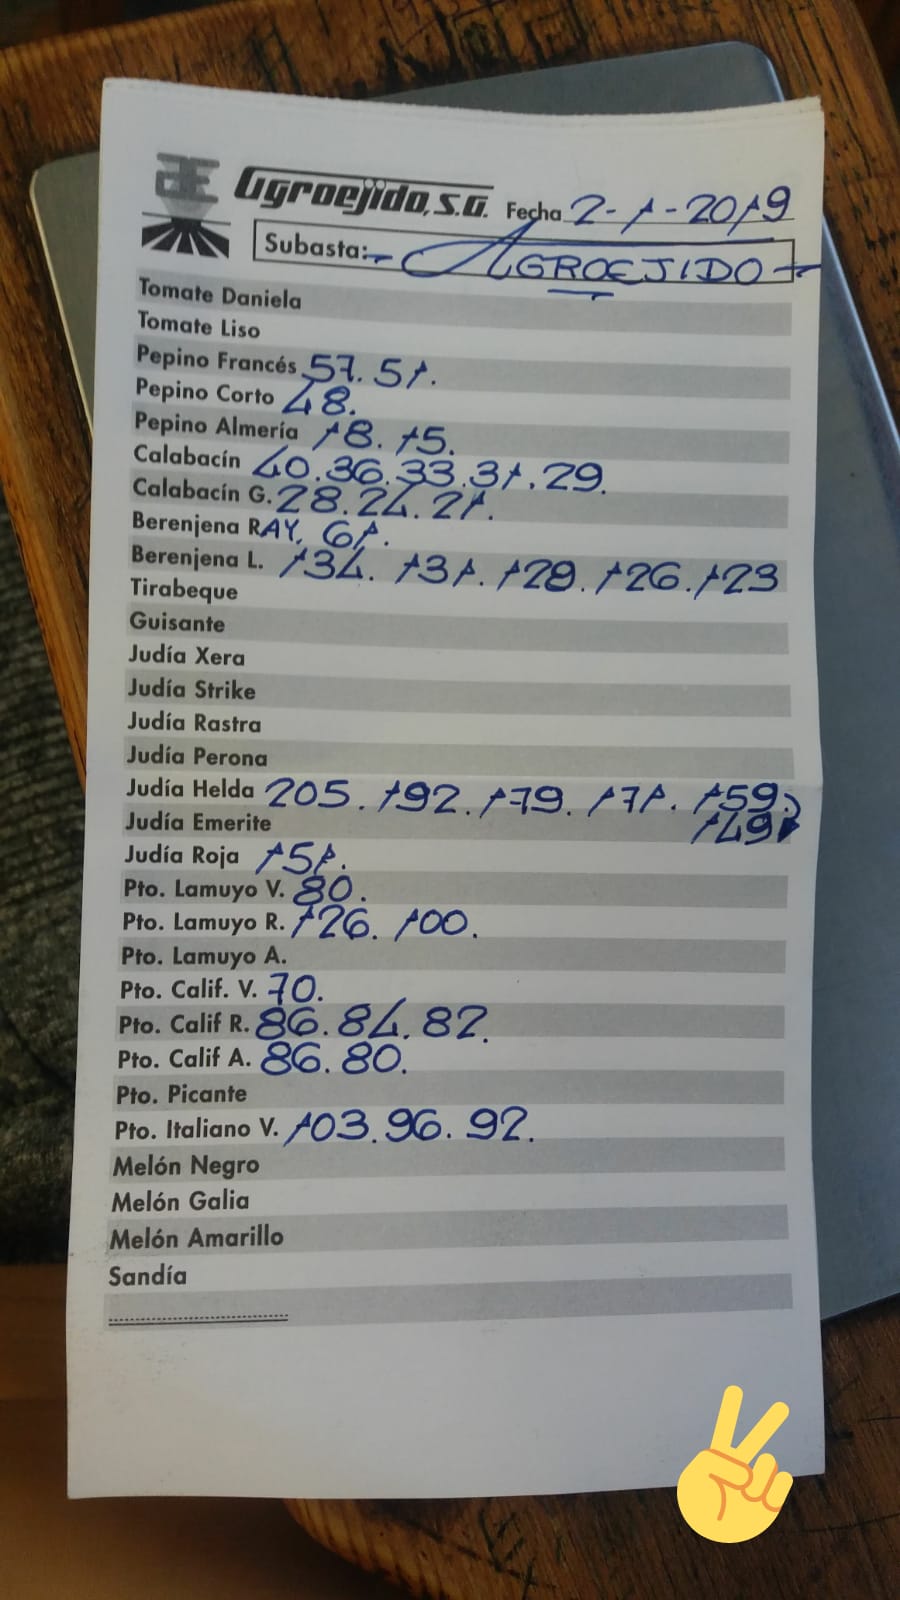 AE Agroejido, S.A. Fecha 2-1-2019
Subasta:- AGROEJIDO -
Tomate Daniela
Tomate Liso
Pepino Francés 57. 51.
Pepino Corto 48.
Pepino Almería 18. 15.
Calabacín 40. 36. 33. 31. 29.
Calabacín G. 28. 24. 21.
Berenjena RAY. 61.
Berenjena L. 134. 131. 128. 126. 123
Tirabeque
Guisante
Judía Xera
Judía Strike
Judía Rastra
Judía Perona
Judía Helda 205. 192. 179. 171. 159.
Judía Emerite 149
Judía Roja 151.
Pto. Lamuyo V. 80.
Pto. Lamuyo R. 126. 100.
Pto. Lamuyo A.
Pto. Calif. V. 70.
Pto. Calif R. 86. 84. 82.
Pto. Calif A. 86. 80.
Pto. Picante
Pto. Italiano V. 103. 96. 92.
Melón Negro
Melón Galia
Melón Amarillo
Sandía